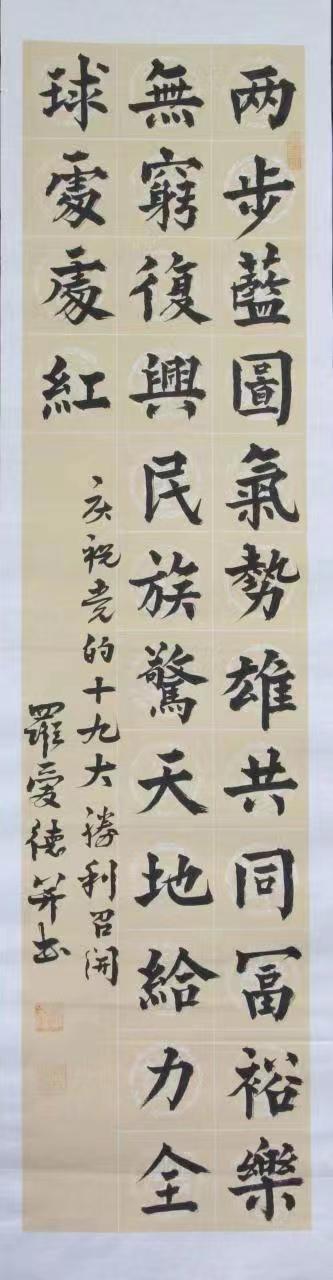 两步藍圖氣勢雄共同冨裕樂
無窮復興民族驚天地給力全
球處處紅
庆祝党的十九大勝利召開
羅愛德并书